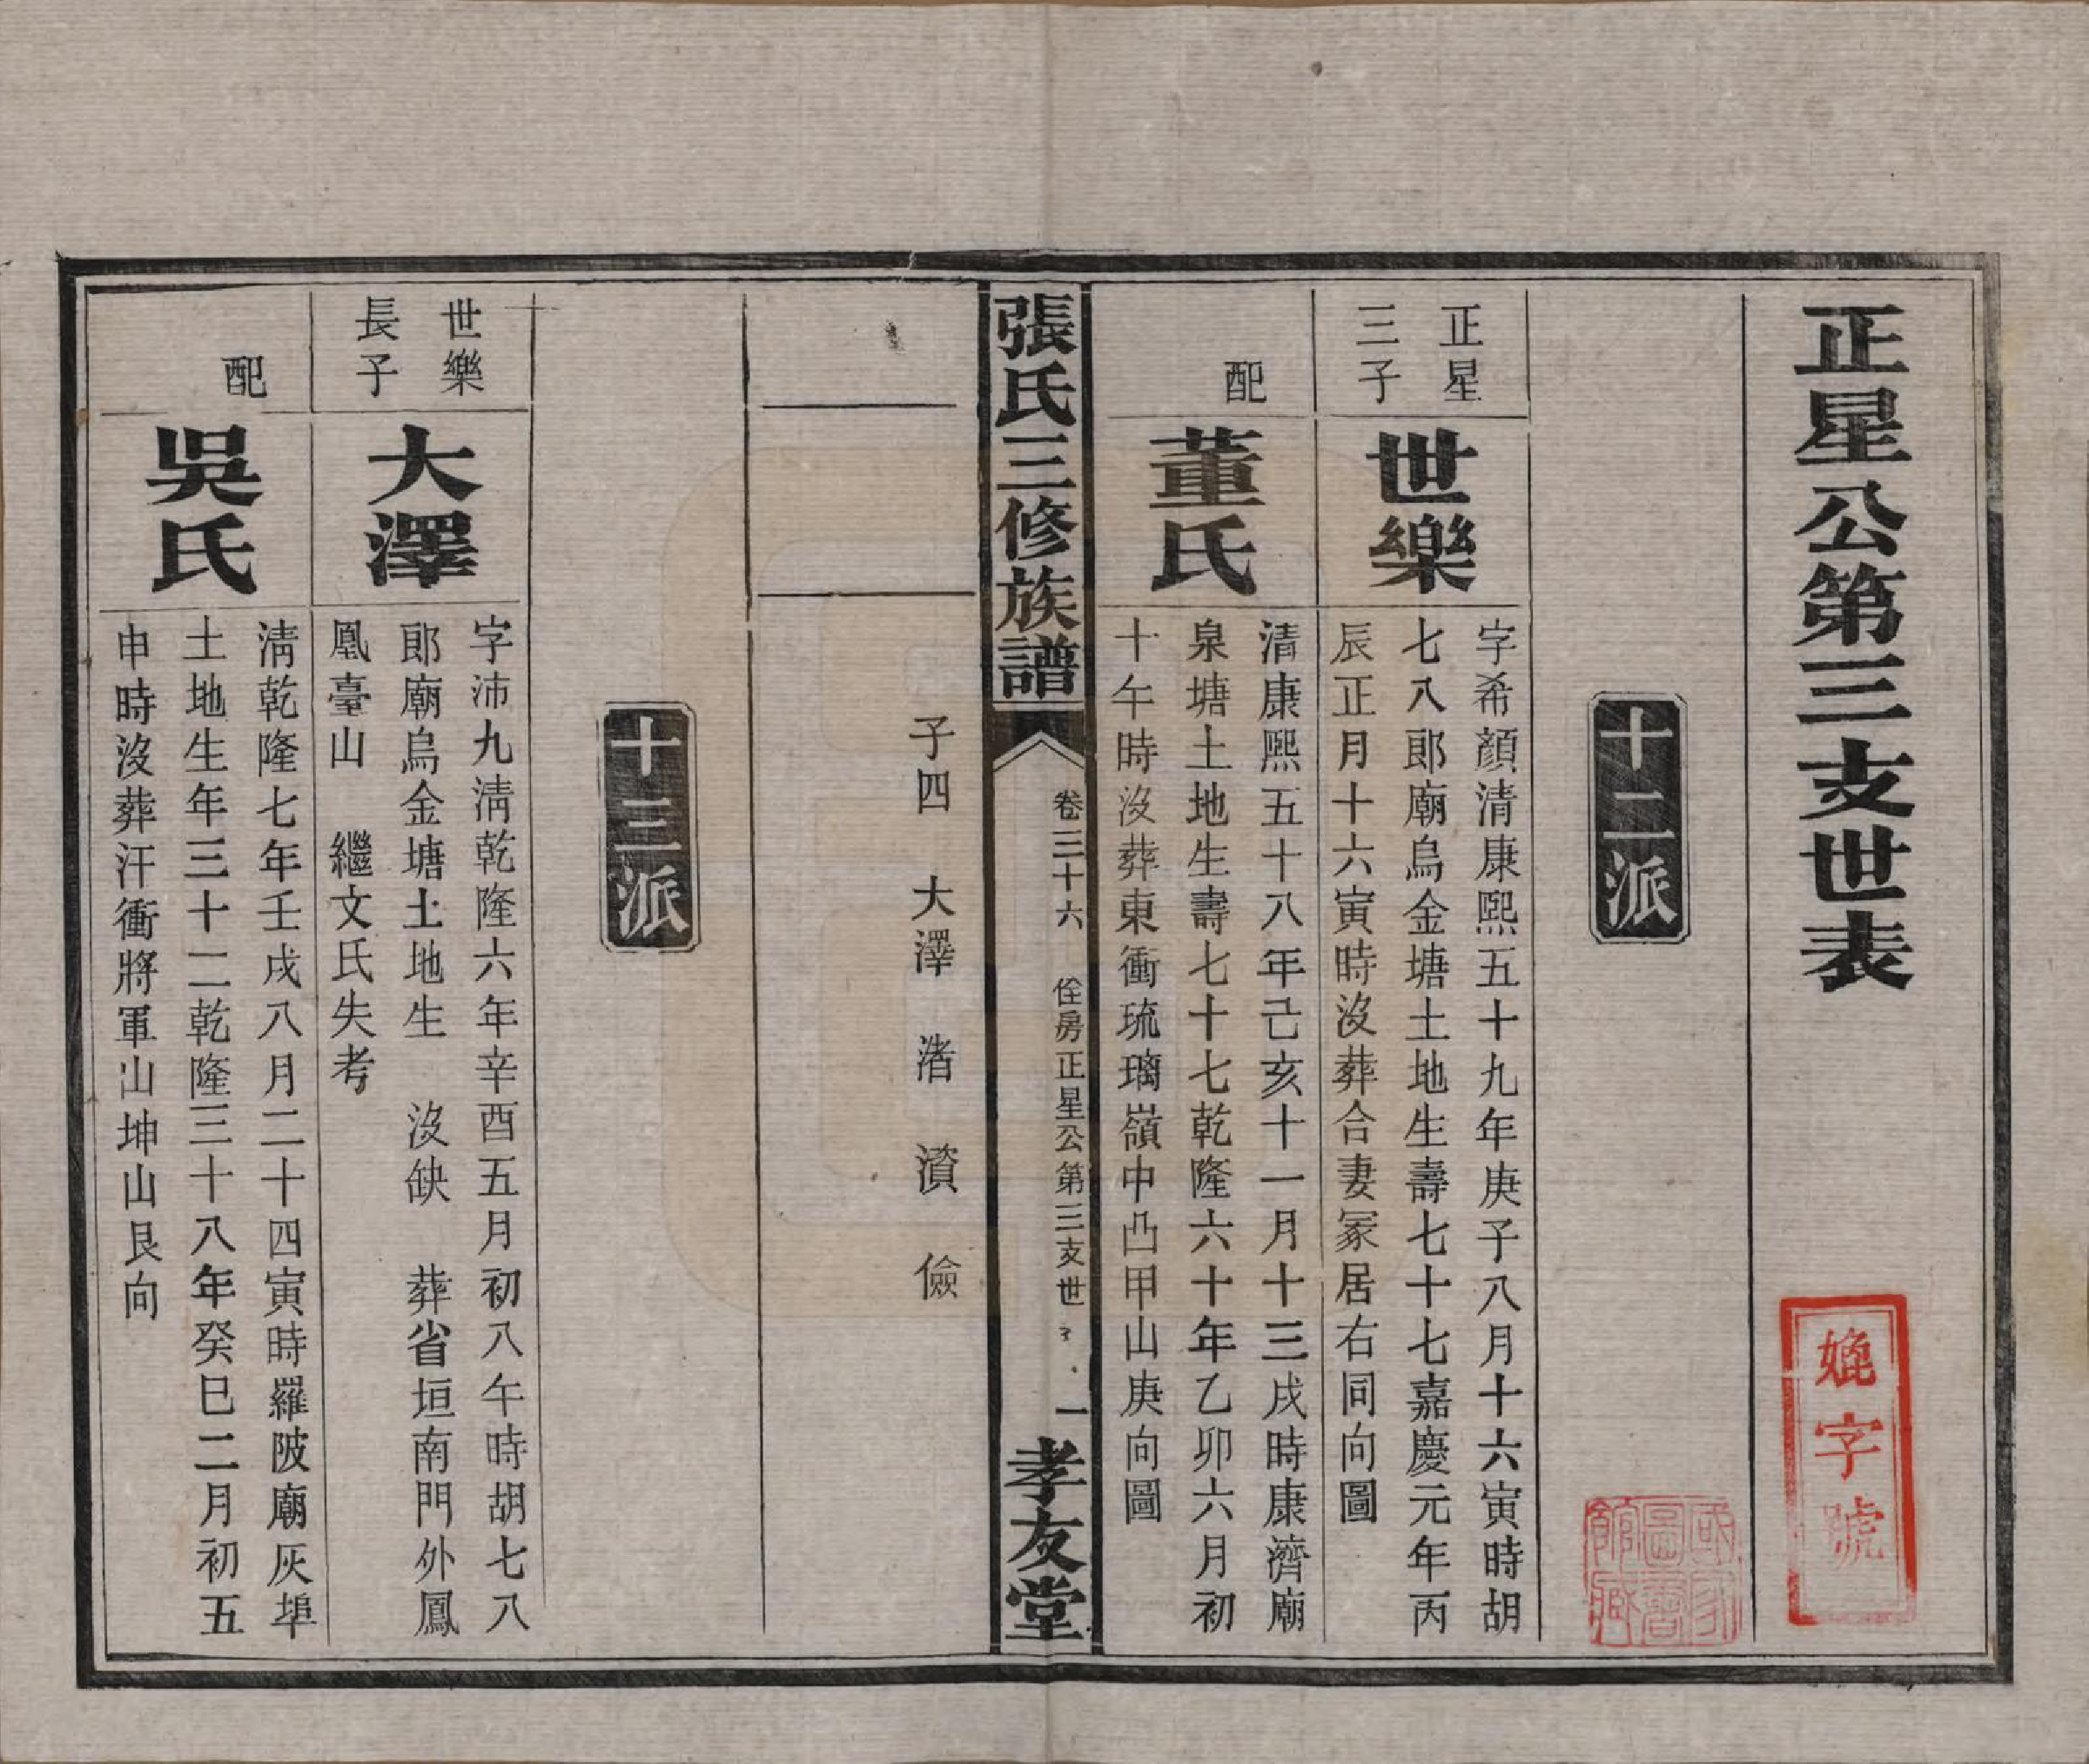 正星公第三支世表
媲字號
國家圖書館藏
十二派
正星
三子
世樂
字希顏清康熙五十九年庚子八月十六寅時胡
七八郎廟烏金塘土地生壽七十七嘉慶元年丙
辰正月十六寅時沒葬合妻冢居右同向圖
配
董氏
清康熙五十八年己亥十一月十三戌時康濟廟
泉塘土地生壽七十七乾隆六十年乙卯六月初
十午時沒葬東衝琉璃嶺中凸甲山庚向圖
張氏三修族譜
卷三十六 佺房正星公第三支世 一
孝友堂
子四 大澤 渚 濱 儉
十三派
世樂
長子
大澤
字沛九清乾隆六年辛酉五月初八午時胡七八
郎廟烏金塘土地生 沒缺 葬省垣南門外鳳
凰臺山 繼文氏失考
配
吳氏
清乾隆七年壬戌八月二十四寅時羅陂廟灰埠
土地生年三十二乾隆三十八年癸巳二月初五
申時沒葬汗衝將軍山坤山艮向